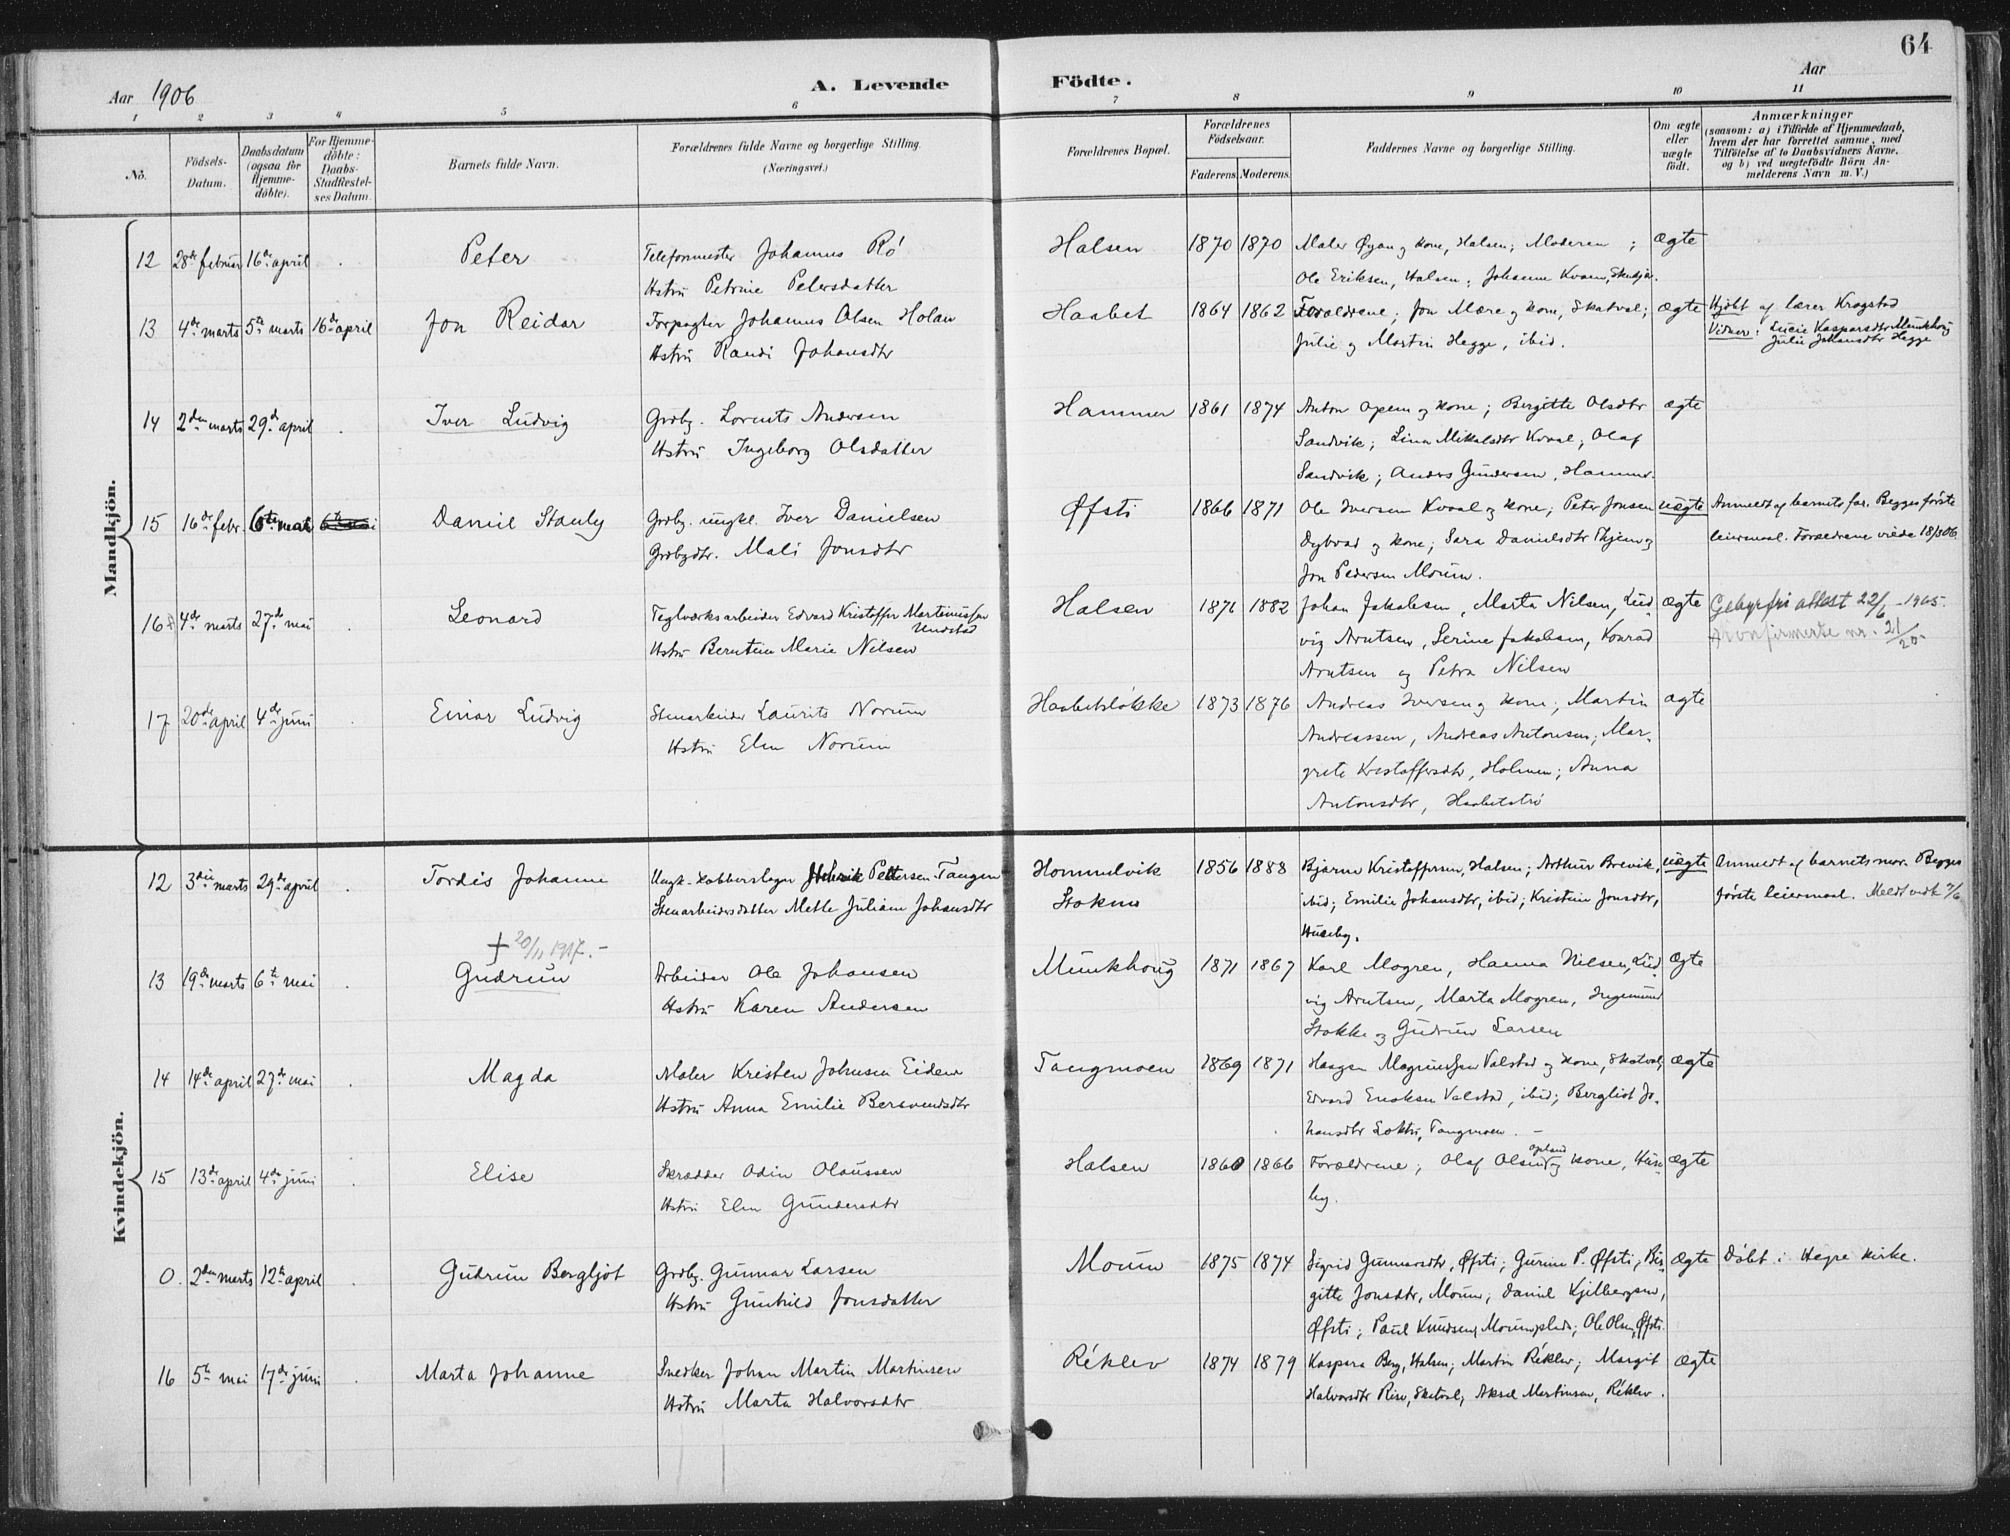 64
Aar 1906
A. Levende
Födte.
Aar
1 2 3 4 5 6 7 8 9 10 11
No.
Födsels-Datum.
Daabsdatum (ogsaa for Hjemme-döbte).
For Hjemme-döbte: Daabs-Stadfæstel-ses Datum.
Barnets fulde Navn.
Forældrenes fulde Navne og borgerlige Stilling.
(Næringsvei.)
Forældrenes Bopæl.
Forældrenes Födselsaar.
Faderens. Moderens.
Faddernes Navne og borgerlige Stilling.
Om ægte eller uægte födt.
Anmærkninger
(saasom: a) i Tilfælde af Hjemmedaab,
hvem der har forrettet samme, med
Tilföielse af to Daabsvidners Navne,
og b) ved uægtefödte Börn An-
melderens Navn m. V.)
Mandkjön.
12 28de februar 16de april . Peter Telefonmester Johannes Rö Halsen 1870 1870 Maler Øyan og kone, Halsen; Moderen ; ægte
Hstru Petrine Petersdatter Ole Eriksen, Halsen; Johanne Kvam,
13 4de marts 5te marts 16de april Jon Reidar Forpagter Johannes Olsen Holan Haabet 1864 1862 Forældrene; Jon Mære og kone, Skatval; ægte Hjdbt af lærer Krogstad
Hstru Randi Johansdtr Julie og Martin Hegge, ibid. Vidner: Lucie Kasparsdtr Munkhoug
Julie Johansdtr Hegge
14 2den marts 29de april . Iver Ludvig Grdbg. Lorents Andersen Hammer 1861 1874 Anton Opem og kone; Bergitte Olsdtr ægte
Hstru Ingeborg Olsdatter Sandvik; Lina Mikkalsdtr Kvaal; Olaf
Sandvik; Anders Gundersen, Hammer.
15 16de febr. 6te mai Daniel Stanly Grdbg. ungkl. Iver Danielsen Øfsti 1866 1871 Ole Iversen Kvaal og kone; Peter Jonsen uægte Anmeldt af barnets far. Begges første
Grdbgdtr. Mali Jonsdtr Dybvad og kone; Sara Danielsdtr og leiermaal. Forældrene viede 18/3 06.
Jon Pedersen Moum.
16 4de marts 27de mai . Leonard Teglverksarbeider Edvard Kristoffer Martinussen Halsen 1871 1882 Johan Jakobsen, Marta Nilsen, Lud- ægte Gebyrfri attest 22/6 - 1965.
Undstad
Hstru Berntine Marie Nilsen vig Arntsen, Serine Jakobsen, Konrad Konfirmerte nr. 21/20.
Arntsen og Petra Nilsen
17 20de april 4de juni . Einar Ludvig Stenarbeider Laurits Norum Haabetsløkke 1873 1876 Andreas Iversen og kone; Martin ægte
Hstru Elen Norum Andreassen, Andreas Antonsen; Mar-
grete Kristoffersdtr, Holmen; Anna
Antonsdtr, Haabetstrø
Kvindekjön.
12 3die marts 29de april . Tordis Johanne Ungk. Kobberslager Henrik Pettersen Tangen Hommelvik 1856 1888 Bjarne Kristoffersen, Halsen; Arthur Brevik, uægte Anmeldt af barnets mor. Begges
Stenarbeidersdatter Mette Juliane Johansdtr Stokmo ibid; Emilie Johansdtr, ibid; Kristine Jonsdtr, første leiermaal. Meldt
Huseby.
† 20/11 1917. -
13 19de marts 6te mai . Gudrun Arbeider Ole Johansen Munkhoug 1871 1867 Karl Mogren, Hanna Nilsen, Lud- ægte
Hstru Karen Andersen vig Arntsen, Marta Mogren, Ingemund
Stokke og Gudrun Larsen
14 14de april 27de mai . Magda Maler Kristen Johnsen Eiden Tangmoen 1869 1871 Haagen Magnussen Valstad og kone, Skatval; ægte
Hstru Anna Emilie Bersvendsdtr Edvard Eriksen Valstad, ibid; Bergliot Jo-
hansdtr Tangmoen. -
15 13de april 4de juni . Elise Skrædder Odin Olaussen Halsen 1860 1866 Forældrene; Olaf Olsen Opland og kone, Huse- ægte
Hstru Elen Gundersdtr by.
0. 2den marts 12te april . Gudrun Bergljot Grdbg. Gunnar Larsen Moum 1875 1874 Sigrid Gunnarsdtr, Øfsti; Gurine P. Øfsti; Bir- ægte Døbt i Hegre kirke.
Hstru Gunhild Jonsdatter gitte Jonsdtr, Moum; Daniel Kjelbergsen,
Øfsti; Paul Knudsen, Moumsplads; Ole Olsen, Øfsti.
16 5te mai 17de juni . Marta Johanne Snedker Johan Martin Martinsen Réklev 1874 1879 Kaspara Berg, Halsen; Martin Réklev; Margit ægte
Hstru Marta Halvorsdtr Halvorsdtr Rise, Skatval; Aksel Martinsen, Réklev.